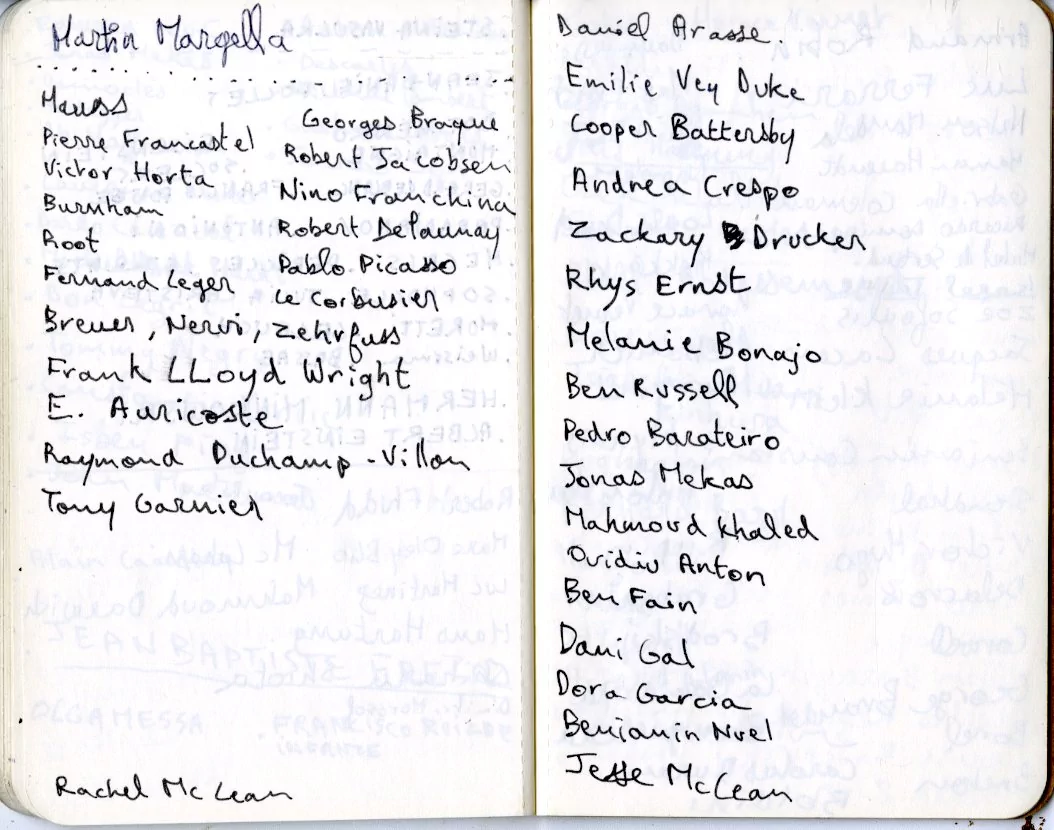 Martin Margella
Mauss
Pierre Francastel
Victor Horta
Burnham
Root
Fernand Leger
Breuer, Nervi, Zehrfuss
Frank LLoyd Wright
E. Auricoste
Raymond Duchamp-Villon
Tony Garnier
Georges Braque
Robert Jacobsen
Nino Franchina
Robert Delaunay
Pablo Picasso
Le Corbusier
Rachel McLean
Daniel Arasse
Emilie Vey Duke
Cooper Battersby
Andrea Crespo
Zackary Drucker
Rhys Ernst
Melanie Bonajo
Ben Russell
Pedro Barateiro
Jonas Mekas
Mahmoud Khaled
Ovidiu Anton
Ben Fain
Dani Gal
Dora Garcia
Benjamin Nuel
Jesse McLean